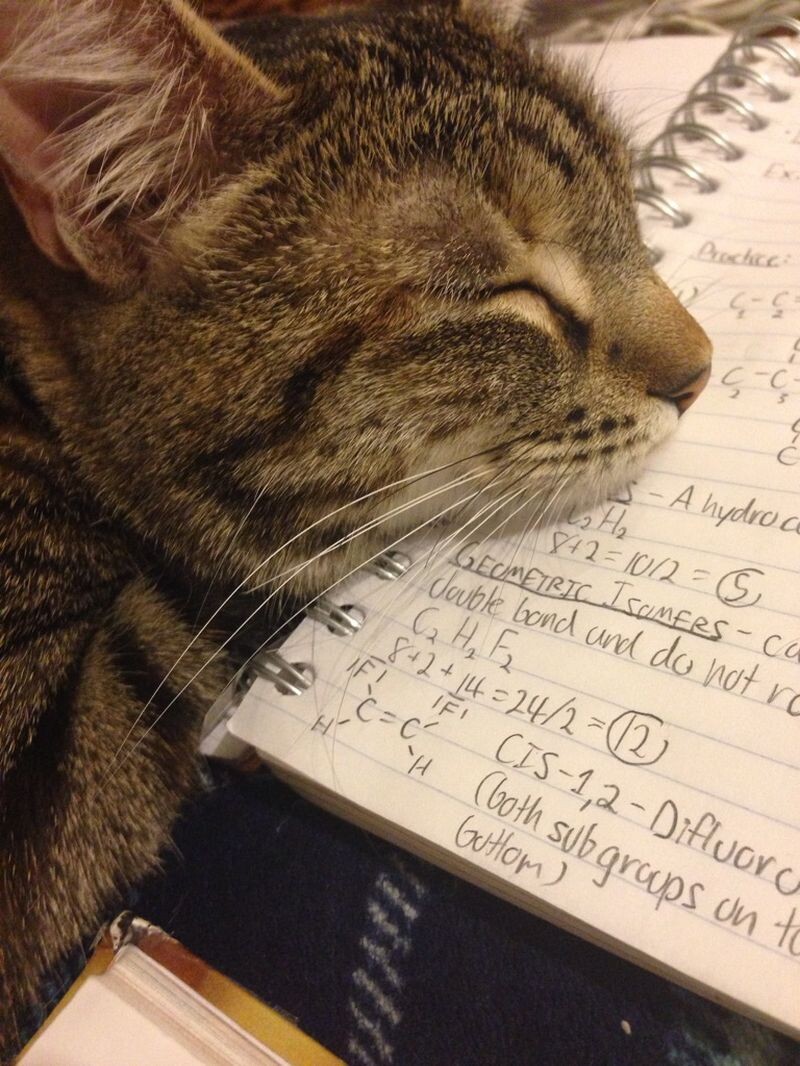 Practice:
C - C
1 2
C - C
2 3
- A hydroc
C2H2
8+2=10/2=5
GEOMETRIC ISOMERS - ca
double bond and do not ro
C2 H2 F2
8+2+14=24/2=12
F F
H C=C
H
CIS-1,2-Difluoro
(both subgroups on to
bottom)